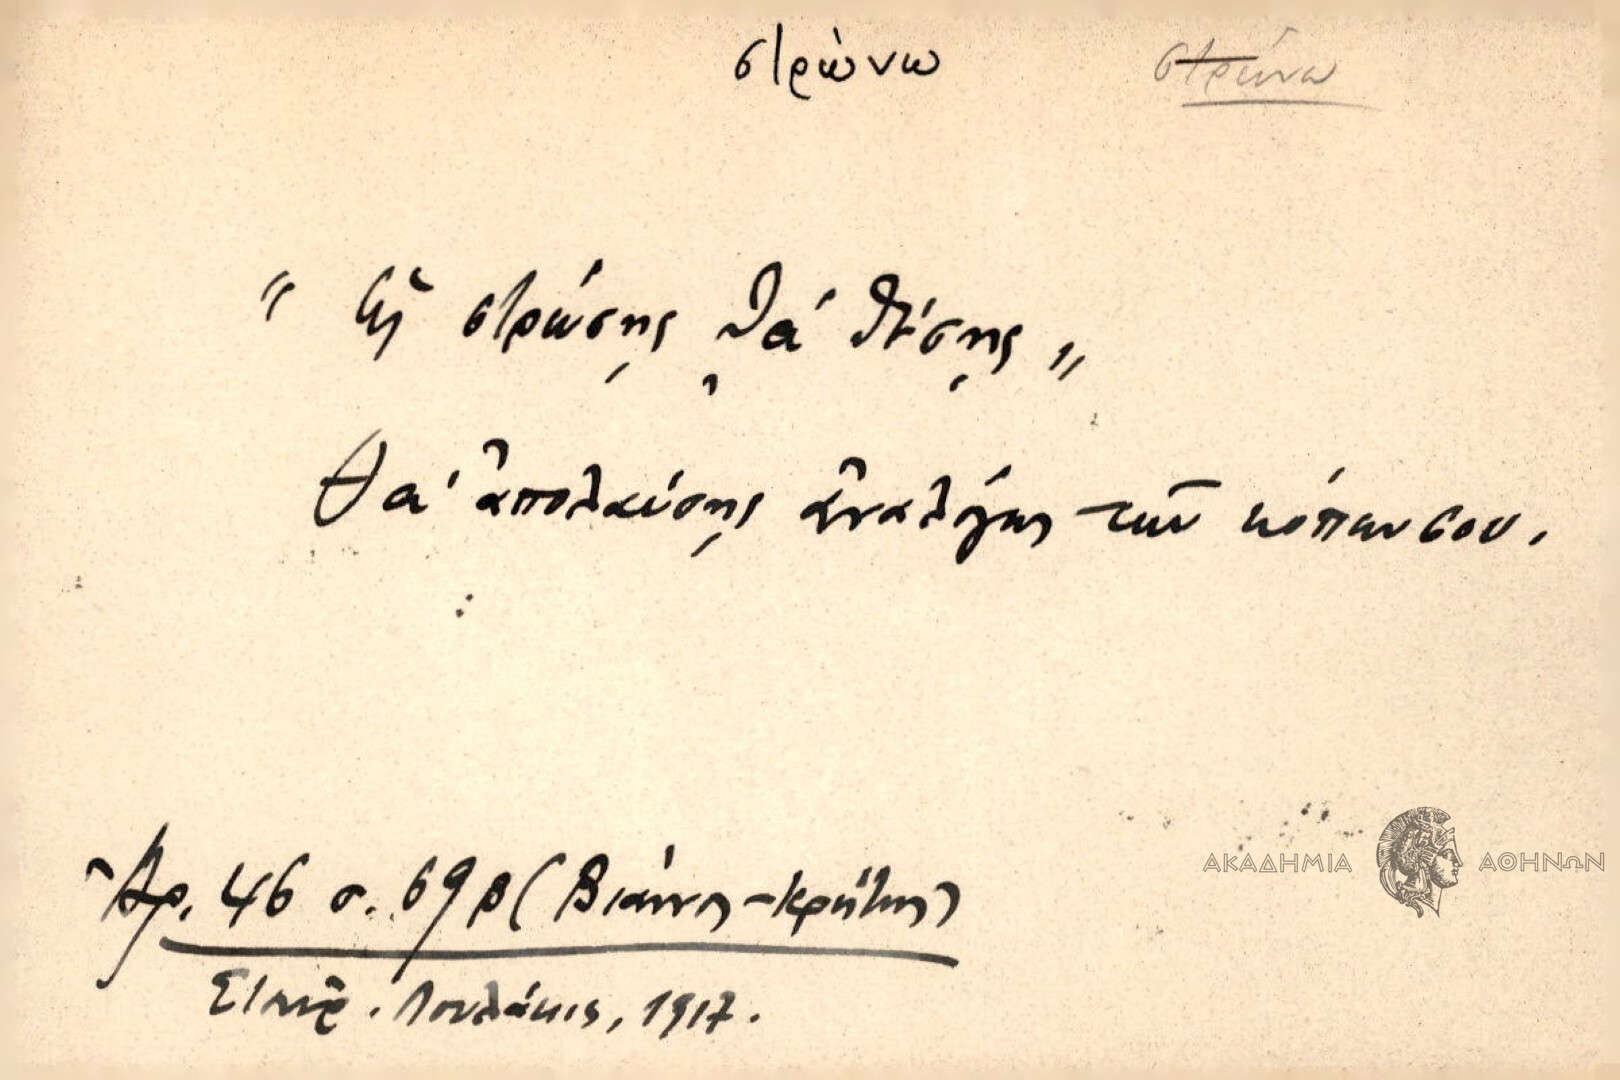 στρώνω στρώνω
"Ὡς στρώσῃς θὰ θέσῃς"
Θὰ ἀπολαύσῃς ἀναλόγως τῶν κόπων σου.
Ἀρ. 46 σ. 69β (Βιάννος-Κρήτης)
Σπυρ. Λουλάκις, 1917.
ΑΚΑΔΗΜΙΑ ΑΘΗΝΩΝ